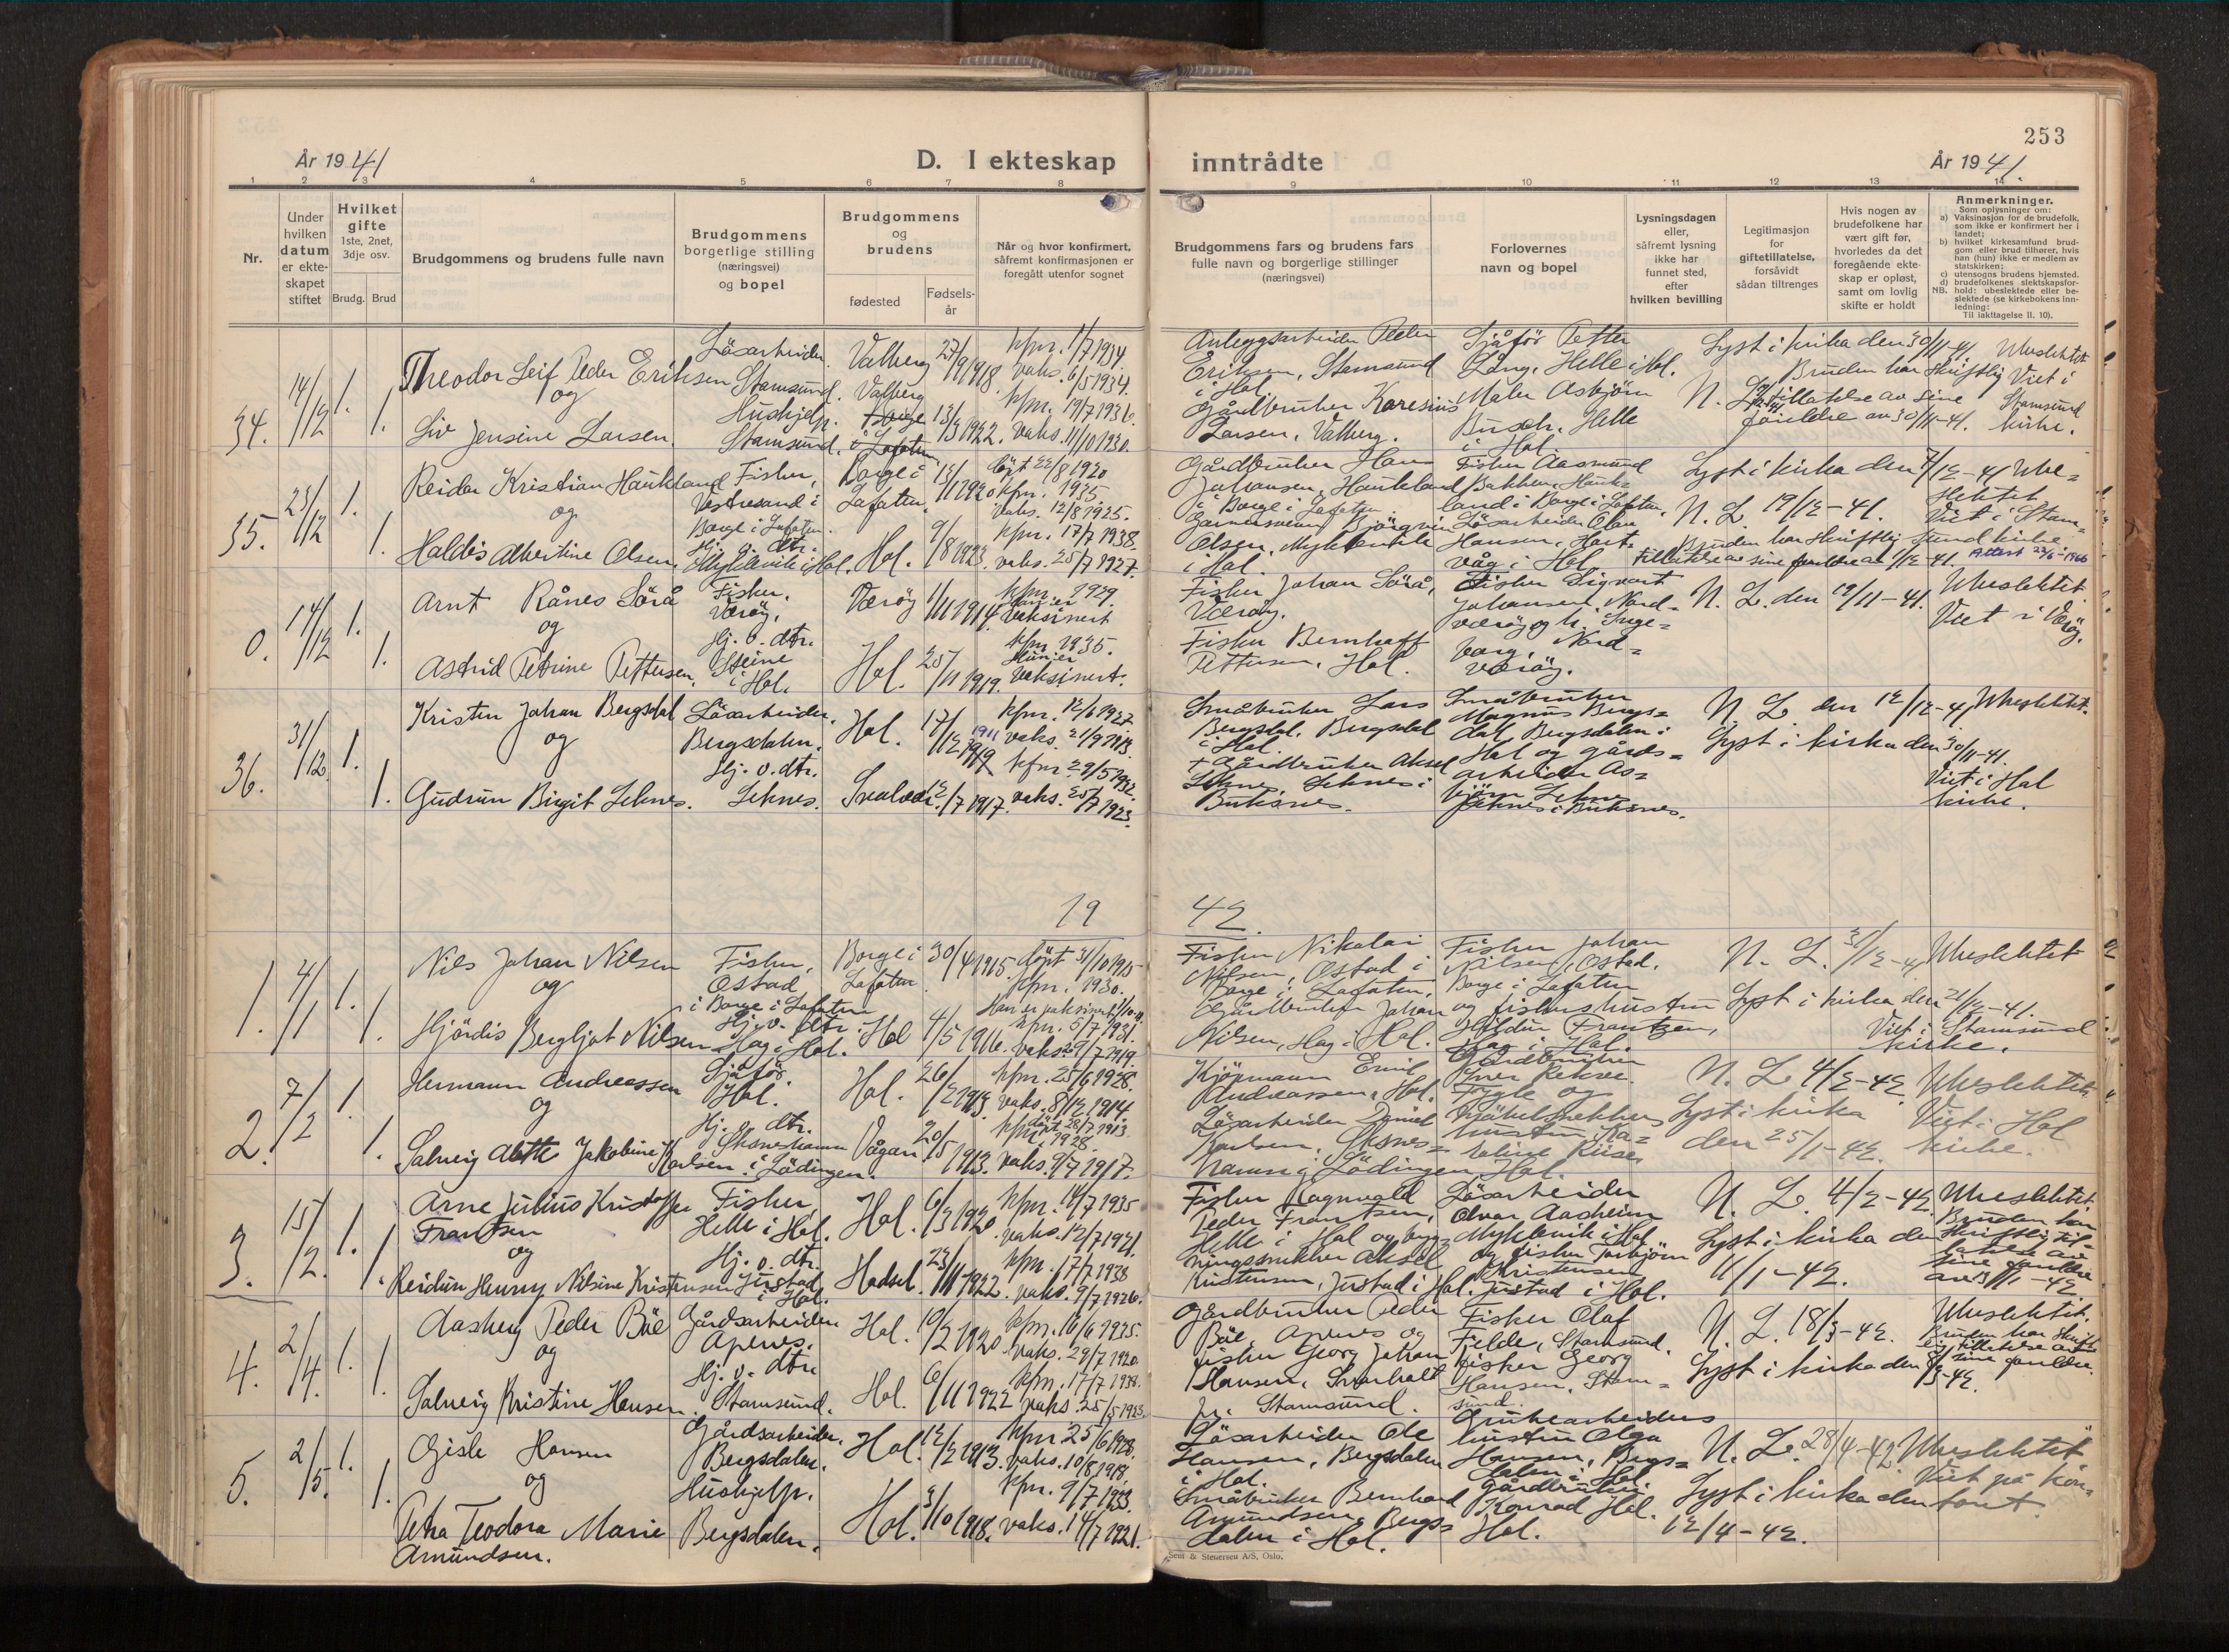 253
År 1941
D. I ekteskap
inntrådte
År 1941.
1 2 3 4 5 6 7 8 9 10 11 12 13 14
Nr.
Under hvilken datum er ekteskapet stiftet
Hvilket gifte
1ste, 2net, 3dje osv.
Brudg. Brud
Brudgommens og brudens fulle navn
Brudgommens borgerlige stilling (næringsvei) og bopel
Brudgommens og brudens
fødested
Fødselsår
Når og hvor konfirmert, såfremt konfirmasjonen er foregått utenfor sognet
Brudgommens fars og brudens fars fulle navn og borgerlige stillinger (næringsvei)
Forlovernes navn og bopel
Lysningsdagen eller, såfremt lysning ikke har funnet sted, efter hvilken bevilling
Legitimasjon for giftetillatelse, forsåvidt sådan tiltrenges
Hvis nogen av brudefolkene har vært gift før, hvorledes da det foregående ekteskap er opløst, samt om lovlig skifte er holdt
Anmerkninger.
Som oplysninger om:
a) Vaksinasjon for de brudefolk, som ikke er konfirmert her i landet;
b) hvilket kirkesamfund brudgom eller brud tilhører, hvis han (hun) ikke er medlem av statskirken;
c) utensogns brudens hjemsted.
d) brudefolkenes slektskapsforhold: ubeslektede eller beslektede (se kirkebokens innledning:
NB.
Til iakttagelse II. 10).
34. 14/12 1. 1.
Theodor Leif Peder Eriksen
og
Liv Jensine Larsen.
Løsarbeider. Stamsund.
Hushjelp. Stamsund.
Valberg 27/9 1918.
Valberg 13/3 1922.
kfm. 1/7 1934.
vaks. 6/5 1934.
kfm. 19/7 1936.
vaks. 11/10 1930.
Anleggsarbeider Peder
Eriksen, Stamsund
i Hol.
Gårdbruker Karesius
Larsen, Valberg.
Sjåfør Petter
Lång, Helle i Hol.
Maler Asbjørn
Busch, Helle
i Hol.
Lyst i kirka den 30/11-41.
Bruden har skriftlig
tillatelse av sine
foreldre av 30/11-41.
Ubeslektet
Viet i
Stamsund
kirke.
35. 23/12 1. 1.
Reidar Kristian Haukland
og
Haldis Albertine Olsen.
Fisker,
Vestresand i
Borge i Lofoten.
Hj. v. dtr.
Myklevik i Hol.
Borge i
Lofoten.
13/11 1920
Hol. 9/8 1923.
døpt 22/8 1920
kfm. 1935.
vaks. 12/8 1925.
kfm. 17/7 1938.
vaks. 25/7 1927.
Gårdbruker Hans
Johansen, Haukland
i Borge i Lofoten.
Olsen, Myklevik
i Hol.
Fisker Aasmund
Bakken, Hauk=
land i Borge i Lofoten.
Løsarbeider Olav
Hansen, Hart=
våg i Hol.
Lyst i kirka den 7/12-41
N. L. 19/12-41.
Bruden har skriftlig
tillatelse av sine foreldre av 1/12-41.
Ube=
slektet
Viet i Stam=
sund kirke.
Attest 22/6-1966
0. 14/12 1. 1.
Arnt Rånes Sørå
og
Astrid Petrine Pettersen.
Fisker.
Værøy.
Hj. v. dtr.
Steine
i Hol.
Værøy 1/11 1914.
Hol. 25/11 1919.
kfm. 1929.
Han er
vaksinert
kfm. 1935.
Hun er
vaksinert.
Fisker Johan Sørå,
Værøy.
Fisker Bernhoff
Pettersen, Hol.
Fisker Sigvart
Johansen, Nord=
værøy og h. Inge=
borg, Nord=
værøy.
N. L. den 19/11-41.
Ubeslektet.
Viet i Værøy.
36. 31/12 1. 1.
Kristen Johan Bergsdal
og
Gudrun Birgit Leknes.
Løsarbeider.
Bergsdalen.
Hj. v. dtr.
Leknes.
Hol. 17/12 1911
Svolvær. 12/7 1917.
kfm. 12/6 1927
vaks. 21/9 1913.
kfm. 29/5 1932.
vaks. 25/7 1923.
Småbruker Lars
Bergsdal, Bergsdal
i Hol.
+ Gårdbruker Aksel
Leknes, Leknes i
Buksnes.
Småbruker
Magnus Bergs=
dal, Bergsdalen i
Hol og gårds=
arbeider As=
bjørn Leknes
Leknes i Buksnes.
N. L. den 12/12-41
Lyst i kirka den 30/11-41.
Ubeslektet.
Viet i Hol
kirke.
19 42.
1. 4/1 1. 1.
Nils Johan Nilsen
og
Hjørdis Bergljot Nilsen
Fisker,
Ostad
i Borge i Lofoten
Hj. v. dtr.
Hag i Hol.
Borge i
Lofoten
30/4 1915.
Hol 4/5 1916.
døpt 31/10 1915
kfm. 1930.
Han er vaksinert
kfm. 5/7 1931.
vaks. 29/7 1919.
Fisker Nikolai
Nilsen, Ostad i
Borge i Lofoten,
Gårdbruker Johan
Nilsen, Hag i Hol.
Fisker Johan
Nilsen, Ostad,
Borge i Lofoten
og fiskerhustru
Hildur Frantzen,
Hag i Hol.
N. L. 31/12-41
Lyst i kirka den 21/12-41.
Ubeslektet
Viet i Stamsund
kirke.
2. 7/2 1. 1.
Hermann Andreassen
og
Solveig Alette Jakobine Karlsen
Sjåfør.
Hol.
Hj. v. dtr.
i Lødingen.
Hol. 26/2 1913.
Vågan 20/5 1913.
kfm. 25/6 1928.
vaks. 8/12 1914.
døpt 28/7 1913.
kfm. i 1928.
vaks. 9/7 1917.
Kjøpmann Emil
Andreassen, Hol.
Løsarbeider Daniel
Karlsen,
hamn i Lødingen.
Gårdbruker
Iver
Fygle og
hustru Ka=
roline Riise,
Hol.
N. L. 4/2-42
Lyst i kirka
den 25/1-42.
Ubeslektet.
Viet i Hol
kirke.
3. 15/2. 1. 1.
Arne Julius Kristoffer
Frantsen
og
Reidun Henny Nilsine Kristensen
Fisker,
Helle i Hol.
Hj. v. dtr.
Justad
i Hol.
Hol. 6/3 1920
Hadsel. 23/11 1922.
kfm. 14/7 1935
vaks. 12/7 1921.
kfm. 17/7 1938
vaks. 9/7 1926.
Fisker Ragnvald
Peder Frantsen,
Helle i Hol og byg=
ningssnekker Aksel
Kristensen, Justad i Hol.
Løsarbeider
Alvar Aasheim
Myklevik i Hol
og fisker Torbjørn
Kristensen
Justad i Hol.
N. L. 4/2-42.
Lyst i kirka den
11/1-42.
Ubeslektet.
Bruden har
skriftlig til=
latelse av
sine foreldre
av 11/1-42
4. 2/4. 1. 1.
Aasberg Peder Bøe
og
Solveig Kristine Hansen.
Gårdsarbeider
Apenes.
Hj. v. dtr.
Stamsund.
Hol. 10/2 1920
Hol. 6/11 1922
kfm. 16/6 1935.
vaks. 29/7 1920.
kfm. 17/7 1938.
vaks. 25/5 1923.
Gårdbruker Peder
Bøe, Apenes og
fisker Georg Johan
Hansen, Svarholt
pr. Stamsund.
Fisker Olaf
Felde, Stamsund.
Fisker Georg
Hansen, Stam=
sund.
N. L. 18/3-42.
Lyst i kirka den 8/3-42.
Ubeslektet.
Bruden har skrift=
lig tillatelse av
sine foreldre.
5. 2/5. 1. 1.
Gisle Hansen
og
Petra Teodora Marie
Amundsen.
Gårdsarbeider.
Bergsdalen.
Hushjelp.
Bergsdalen.
Hol. 12/2 1913.
Hol. 3/10 1918.
kfm 25/6 1928.
vaks. 10/8 1918.
kfm. 9/7 1933.
vaks. 14/7 1921.
Løsarbeider Ole
Hansen, Bergsdalen
i Hol.
Småbruker Bernhard
Amundsen, Bergs=
dalen i Hol.
Grubearbeiders
hustru Olga
Hansen, Bergs=
dalen i Hol
Gårdbruker
Konrad Hol.
Hol.
N. L. 28/4-42
Lyst i kirka den
12/4-42.
Ubeslektet
Viet på kon=
toret.
Sem & Stenersen A/S, Oslo.